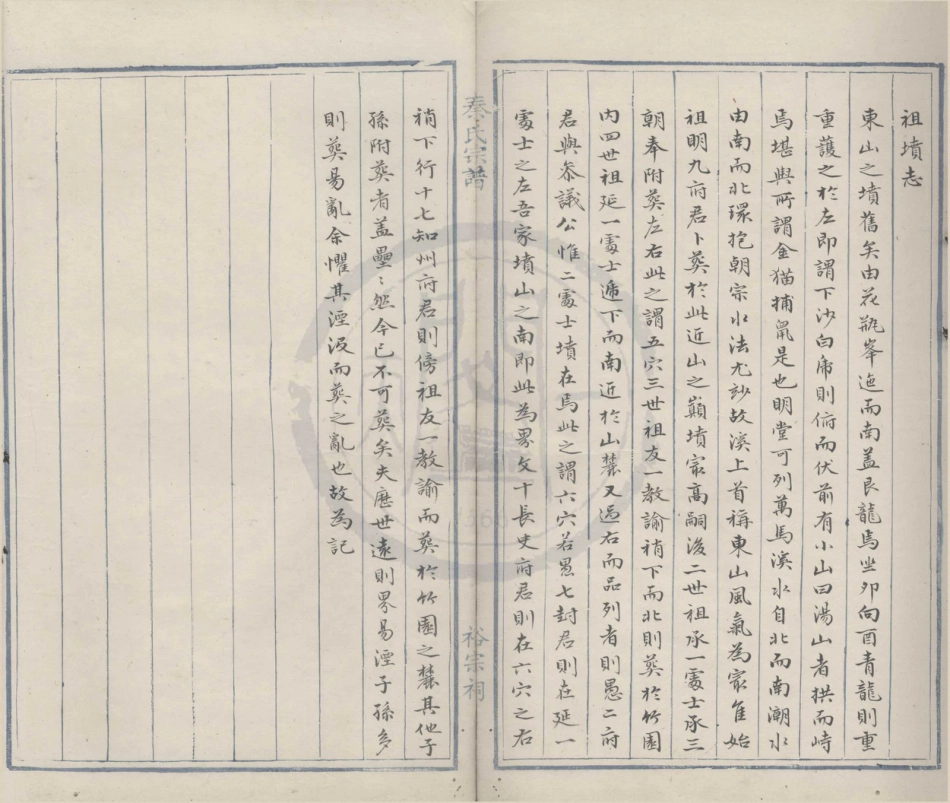 祖墳志
東山之墳舊矣由花瓶峯迤而南蓋艮龍焉坐卯向酉青龍則重
重護之於左即謂下沙白虎則俯而伏前有小山曰湯山者拱而峙
焉堪輿所謂金猫捕鼠是也明堂可列萬馬溪水自北而南潮水
由南而北環抱朝宗水法尤妙故溪上首稱東山風氣為最佳始
祖明九府君卜葬於此近山之巔墳最高嗣後二世祖承一處士承三
朝奉附葬左右此之謂五穴三世祖友一教諭稍下而北則葬於竹園
內四世祖延一處士遞下而南近於山麓又迤右而品列者則愚二府
君與叅議公惟二處士墳在焉此之謂六穴若愚七封君則在延一
處士之左吾家墳山之南即此為界文十長史府君則在六穴之右
稍下行十七知州府君則傍祖友一教諭而葬於竹園之麓其他子
孫附葬者盖壘〻然今已不可葬矣夫歷世遠則界易湮子孫多
則葬易亂余懼其湮沒而葬之亂也故為記
秦氏宗譜
裕宗祠